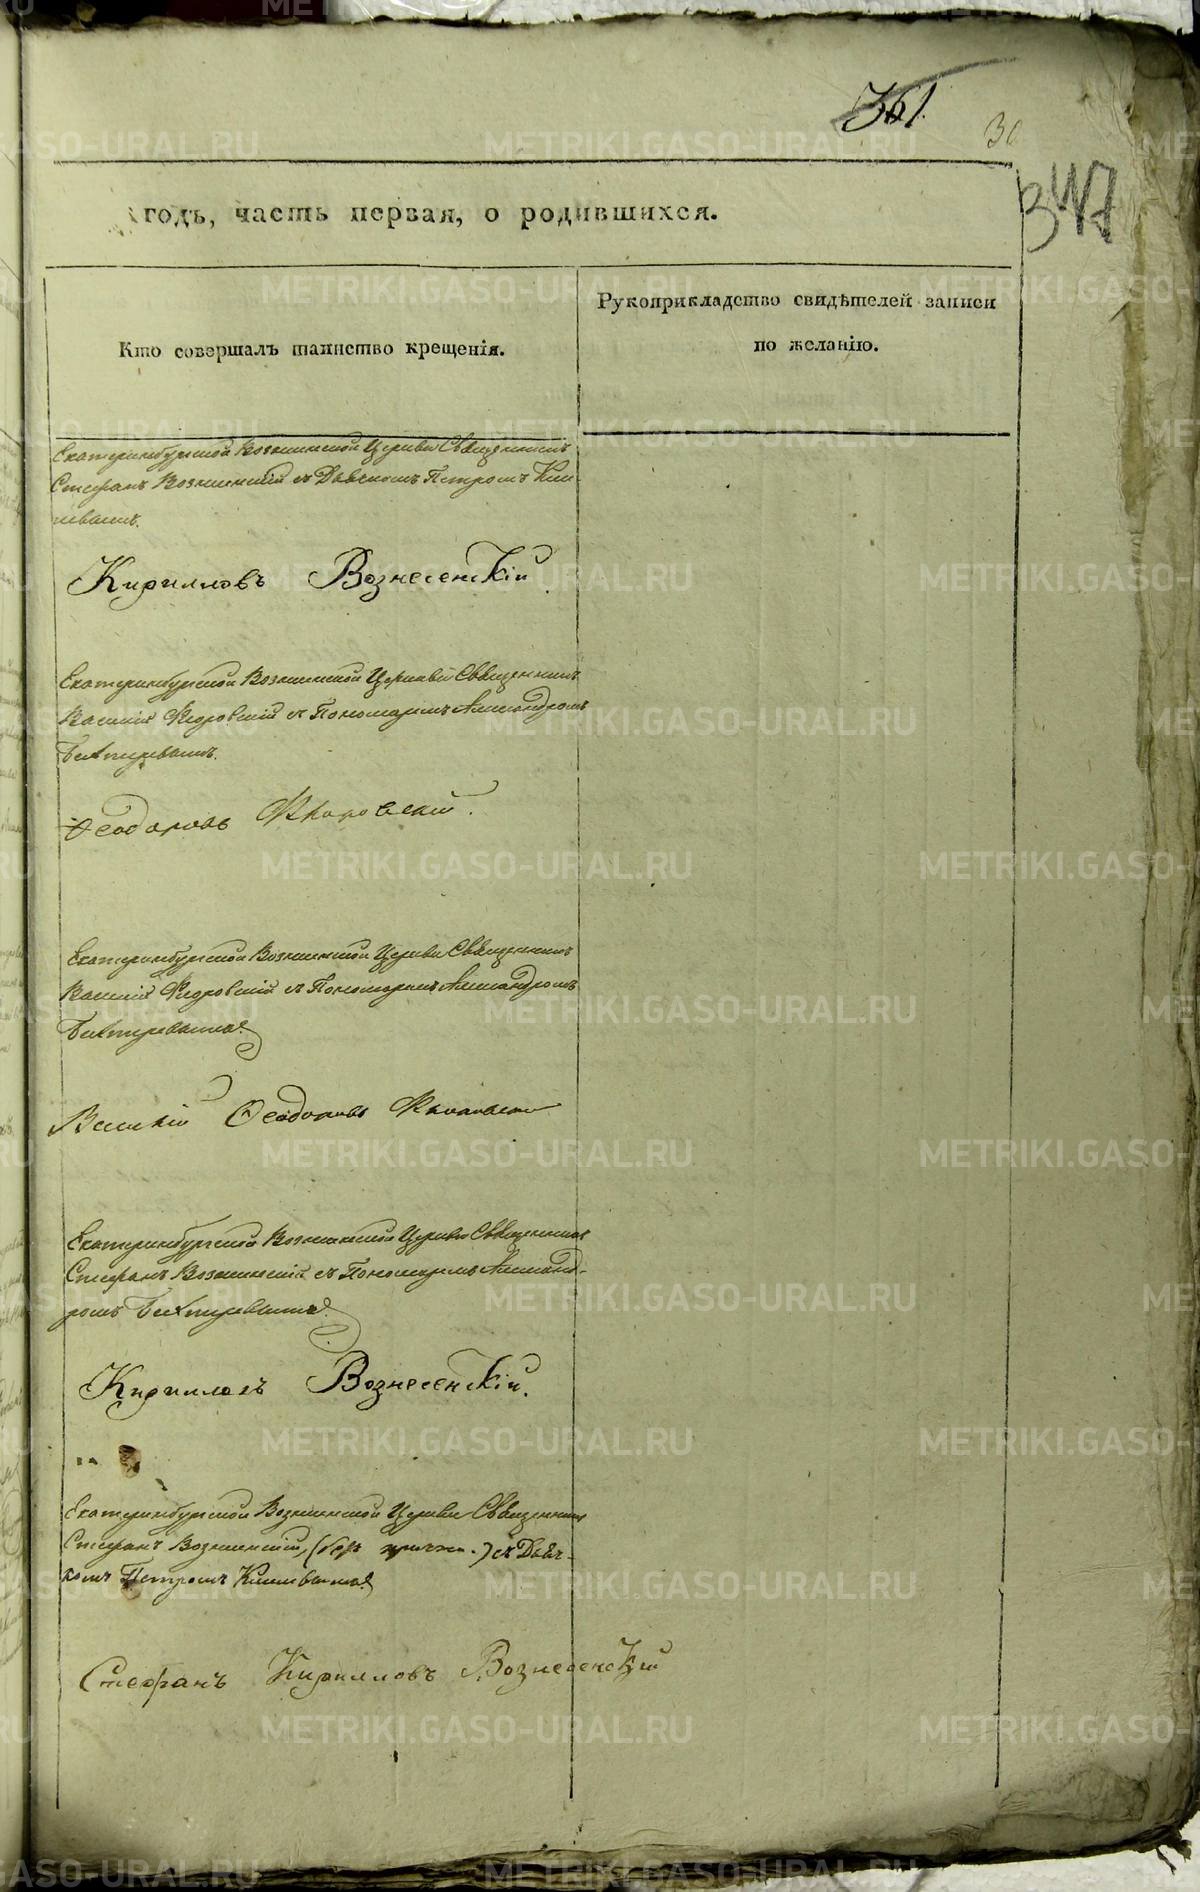 361.
30
347
годъ, часть первая, о родившихся.
Кто совершалъ таинство крещенія.
Рукоприкладство свидѣтелей записи
по желанію.
Екатеринбургской Вознесенской Церкви Священникъ
Стефанъ Вознесенскій съ Дьячкомъ Петромъ
Кирилловъ Вознесенскій.
Екатеринбургской Вознесенской Церкви Священникъ
Василій Флоровскій съ Пономаремъ Александромъ
Бехтеревымъ.
Ѳеодоровъ Флоровскій.
Екатеринбургской Вознесенской Церкви Священникъ
Василій Флоровскій съ Пономаремъ Александромъ
Бехтеревымъ
Василій Ѳеодоровъ Флоровскій
Екатеринбургской Вознесенской Церкви Священникъ
Стефанъ Вознесенскій съ Пономаремъ Александ-
ромъ Бехтеревымъ
Кирилловъ Вознесенскій.
Екатеринбургской Вознесенской Церкви Священникъ
Стефанъ Вознесенскій, (безъ причта.) съ Дьяч-
комъ Петромъ
Стефанъ Кирилловъ Вознесенскій
METRIKI.GASO-URAL.RU